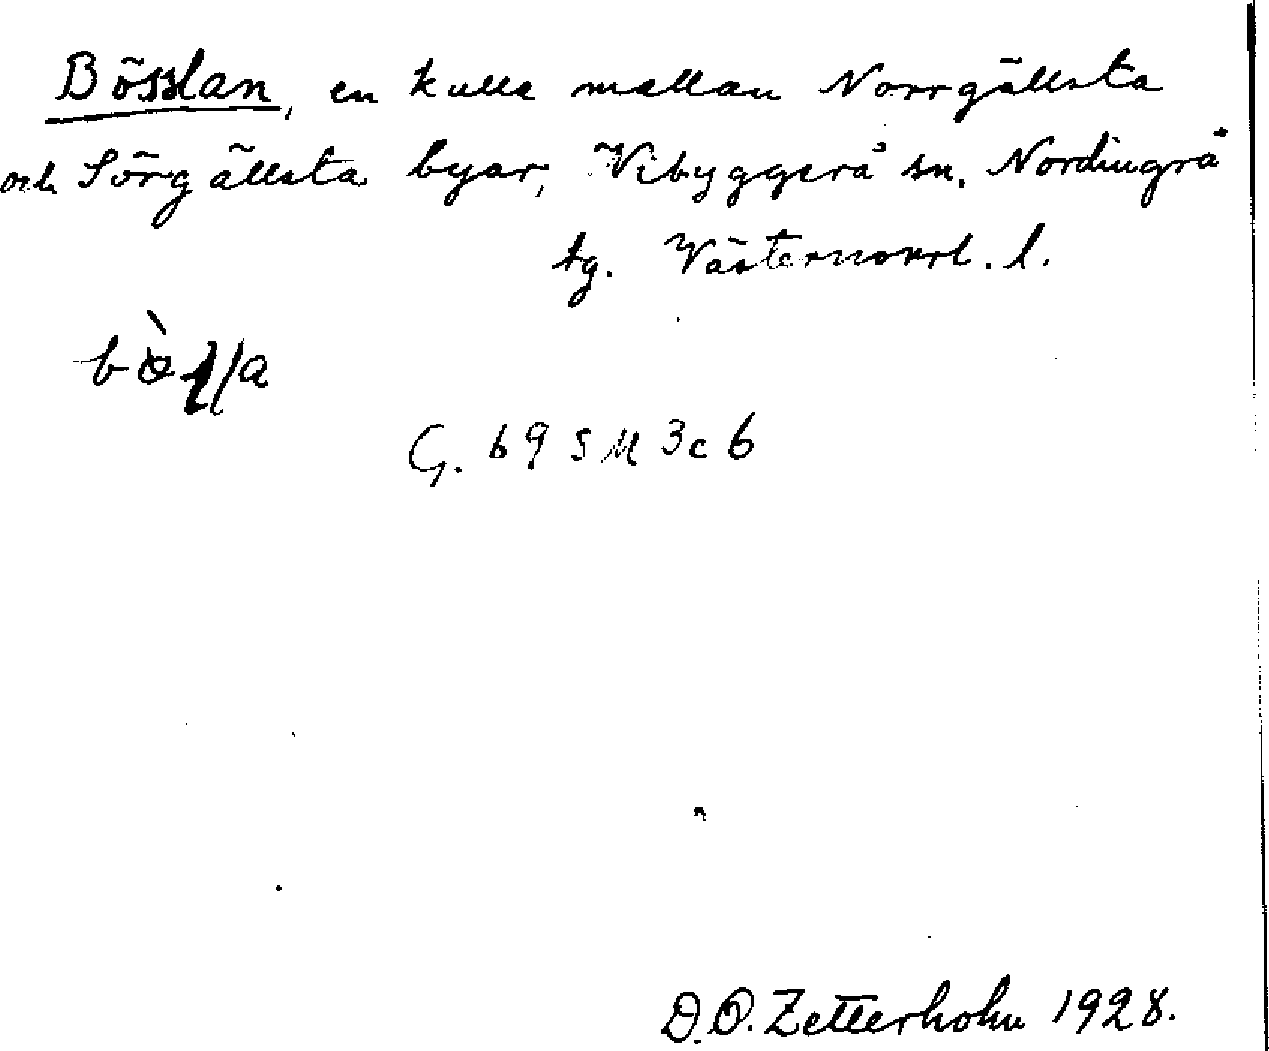 Bösslan, en kulle mellan Norrgällsta
och Sörgällsta byar, Vibyggerå sn. Nordingrå
tg. Västernorrl. l.
G. 69 5 M 3c 6
D.O. Zetterholm 1928.